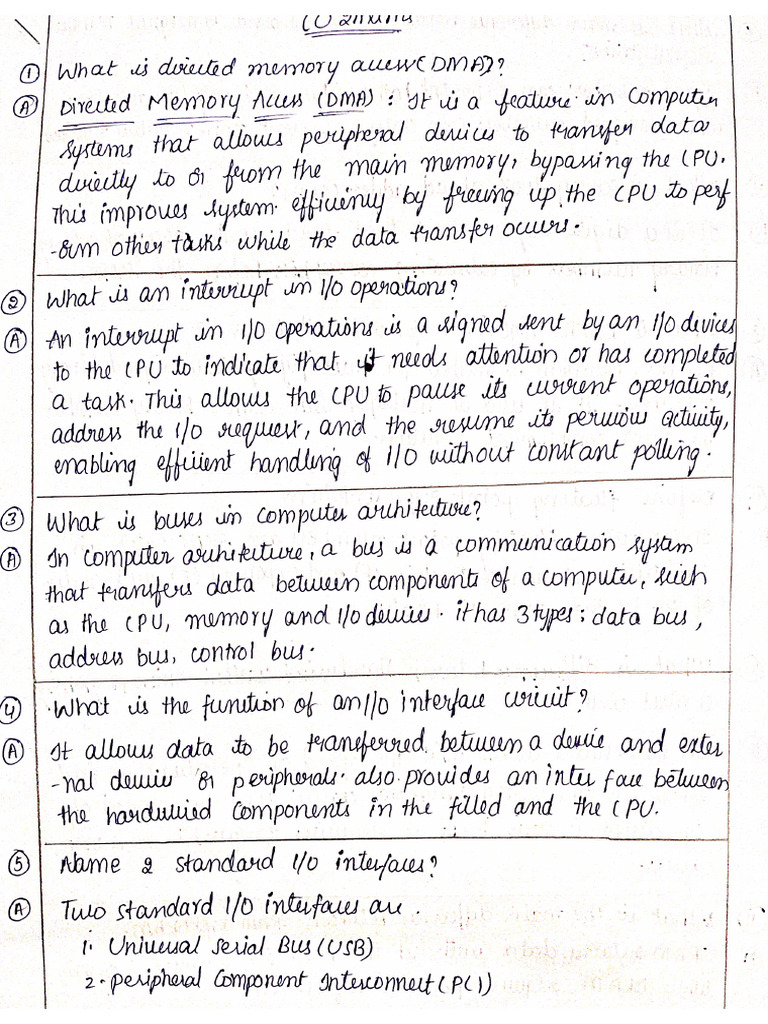 ① What is directed memory access (DMA)?
Ⓐ Directed Memory Access (DMA) : It is a feature in computer
systems that allows peripheral devices to transfer data
directly to or from the main memory, bypassing the CPU.
This improves system efficiency by freeing up the CPU to perf
-orm other tasks while the data transfer occurs.
② What is an interrupt in I/O operations?
Ⓐ An interrupt in I/O operations is a signed sent by an I/O devices
to the CPU to indicate that it needs attention or has completed
a task. This allows the CPU to pause its current operations,
address the I/O request, and the resume its pervious activity,
enabling efficient handling of I/O without constant polling.
③ What is buses in computer architecture?
Ⓐ In computer architecture, a bus is a communication system
that transfers data between components of a computer, such
as the CPU, memory and I/O device. it has 3 types; data bus,
address bus, control bus.
④ What is the function of an I/O interface circuit?
Ⓐ It allows data to be transferred between a device and exter
-nal device or peripherals. also provides an interface between
the hardwired components in the filled and the CPU.
⑤ Name 2 standard I/O interfaces?
Ⓐ Two standard I/O interfaces are
1. Universal Serial Bus (USB)
2. peripheral Component Interconnect (PCI)